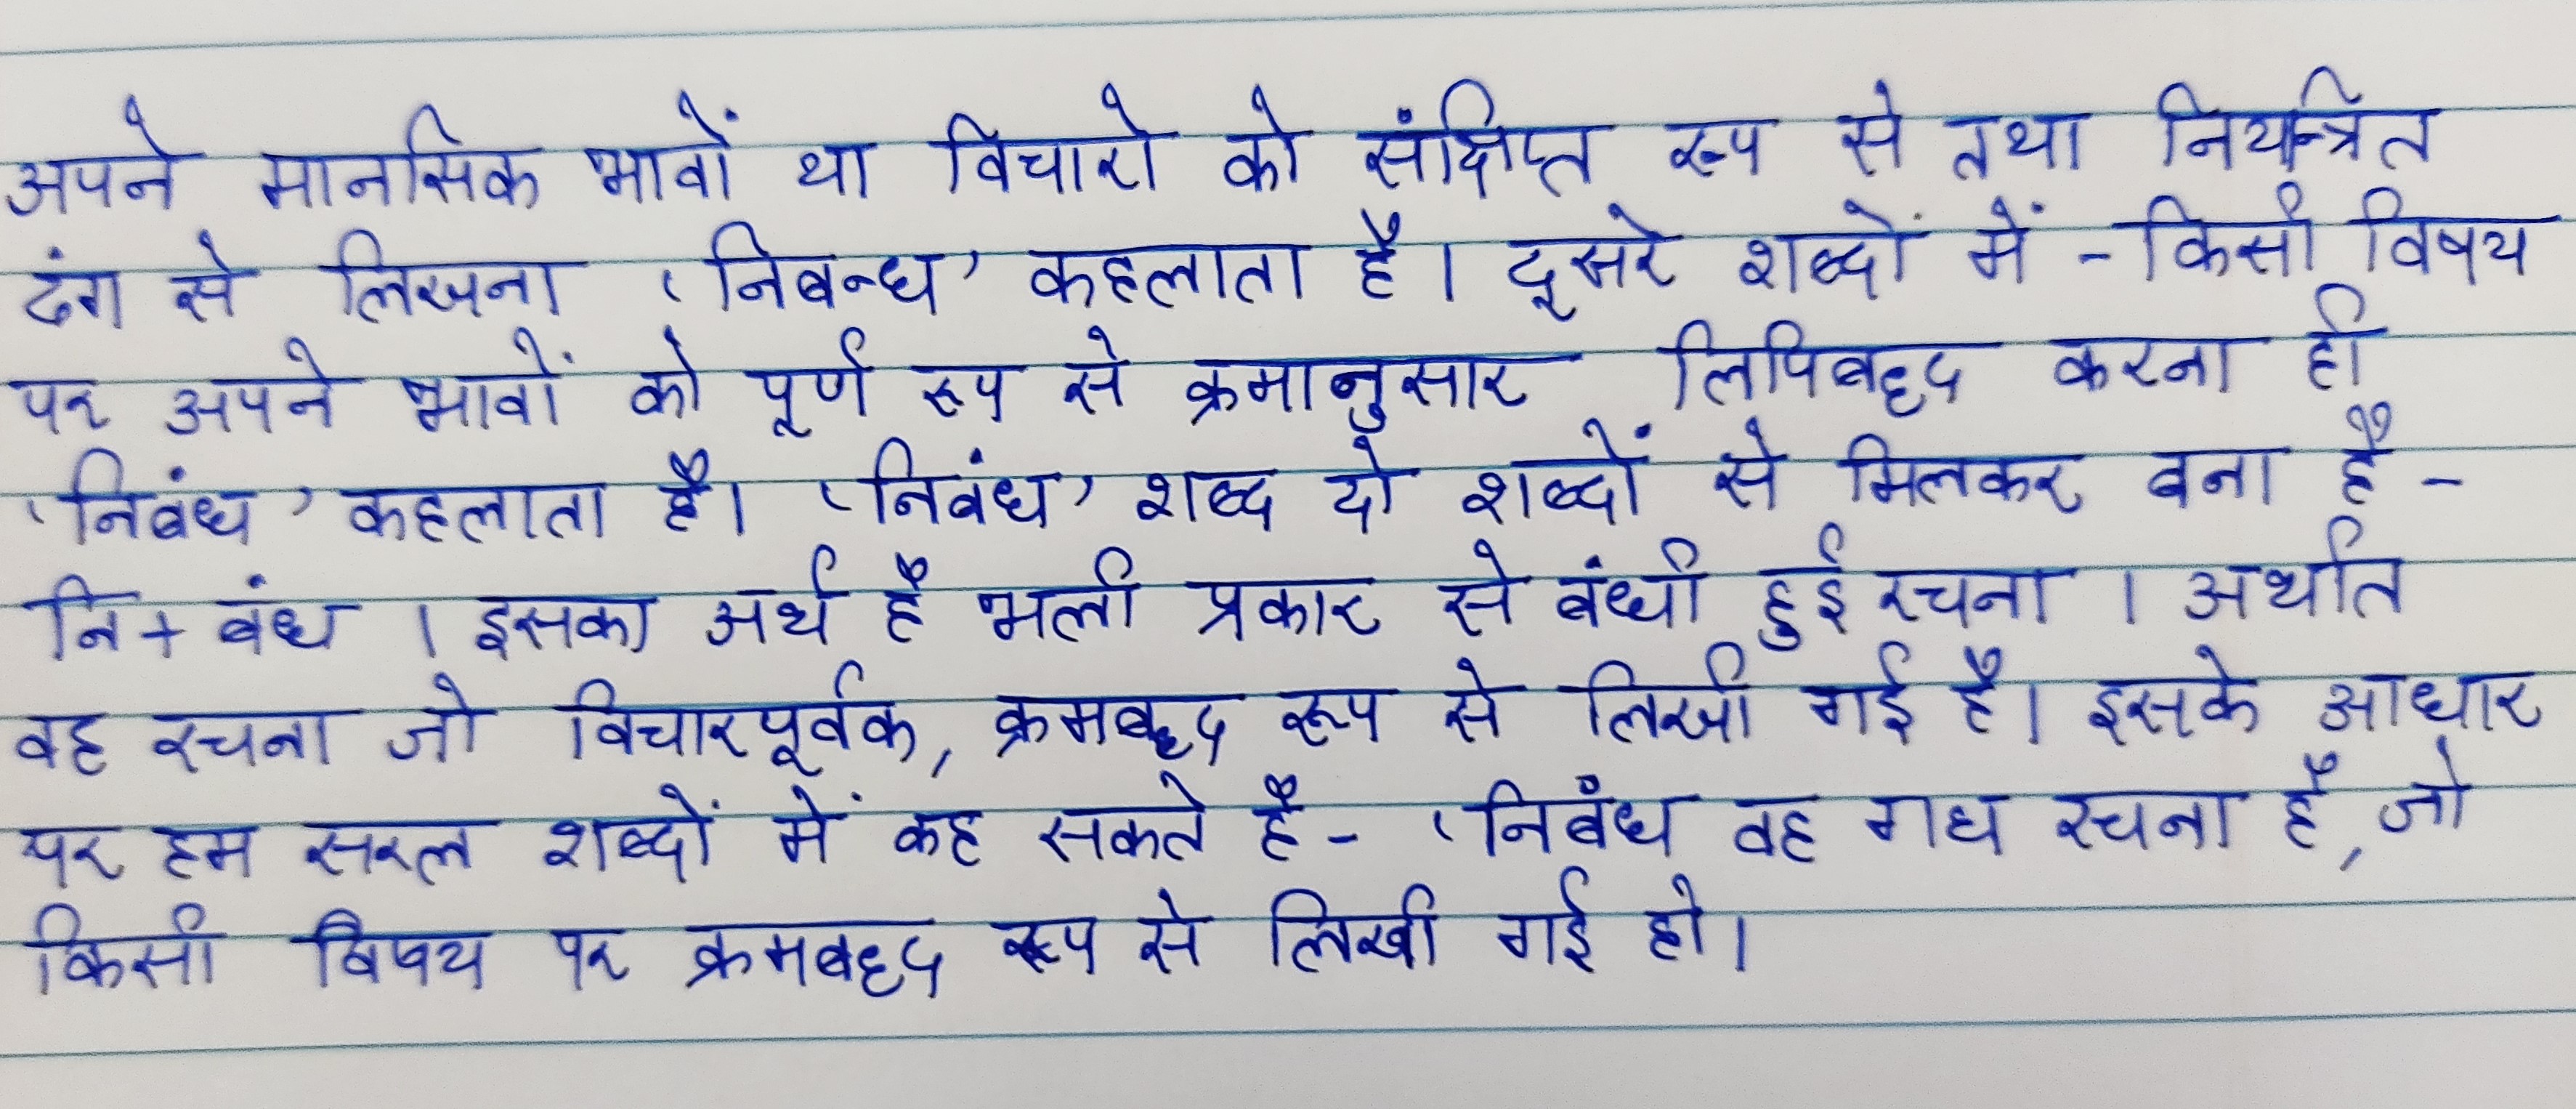 अपने मानसिक भावों था विचारो को संक्षिप्त रूप से तथा नियन्त्रित
ढंग से लिखना 'निबन्ध' कहलाता है। दूसरे शब्दों में - किसी विषय
पर अपने भावों को पूर्ण रूप से क्रमानुसार लिपिबद्द करना ही
'निबंध' कहलाता है। 'निबंध' शब्द दो शब्दों से मिलकर बना है -
नि + बंध । इसका अर्थ है भली प्रकार से बंधी हुई रचना । अर्थात
वह रचना जो विचारपूर्वक, क्रमबद्द रूप से लिखी गई है। इसके आधार
पर हम सरल शब्दों में कह सकते है - 'निबंध वह गध रचना है, जो
किसी विषय पर क्रमबद्द रूप से लिखी गई हो।